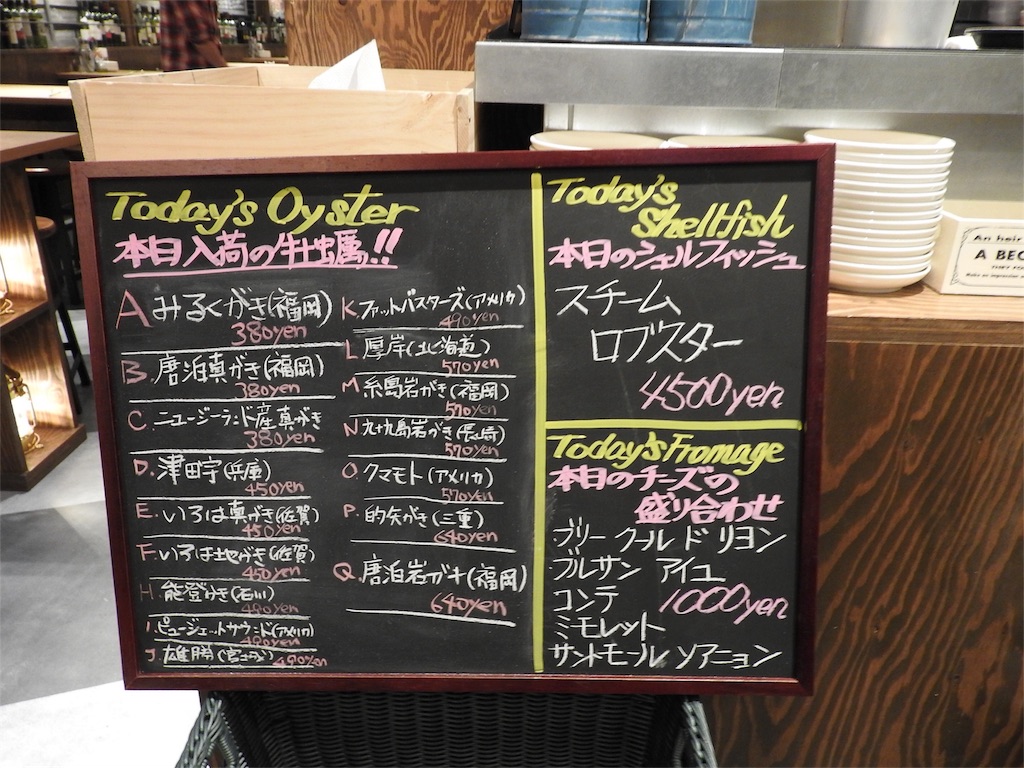 Today's Oyster
本日入荷の牡蠣!!
A みるくがき(福岡)
380yen
B.唐泊真がき(福岡)
380yen
C.ニュージーランド産真がき
380yen
D.津田宇(兵庫)
450yen
E.いろは真がき(佐賀)
450yen
F.いろは地がき(佐賀)
450yen
H.能登がき(石川)
490yen
I.ピュージェットサウンド(アメリカ)
490yen
J.雄勝(宮城)
490yen
K.ファットバスターズ(アメリカ)
490yen
L.厚岸(北海道)
570yen
M.糸島岩がき(福岡)
570yen
N.九十九島岩がき(長崎)
570yen
O.クマモト(アメリカ)
570yen
P.的矢がき(三重)
640yen
Q.唐泊岩ガキ(福岡)
640yen
Today's
Shellfish
本日のシェルフィッシュ
スチーム
ロブスター
4500yen
Today's Fromage
本日のチーズの
盛り合わせ
ブリー クール ド リヨン
ブルサン アイユ
コンテ 1000yen
ミモレット
サントモール ソアニョン
An hair
A BEC